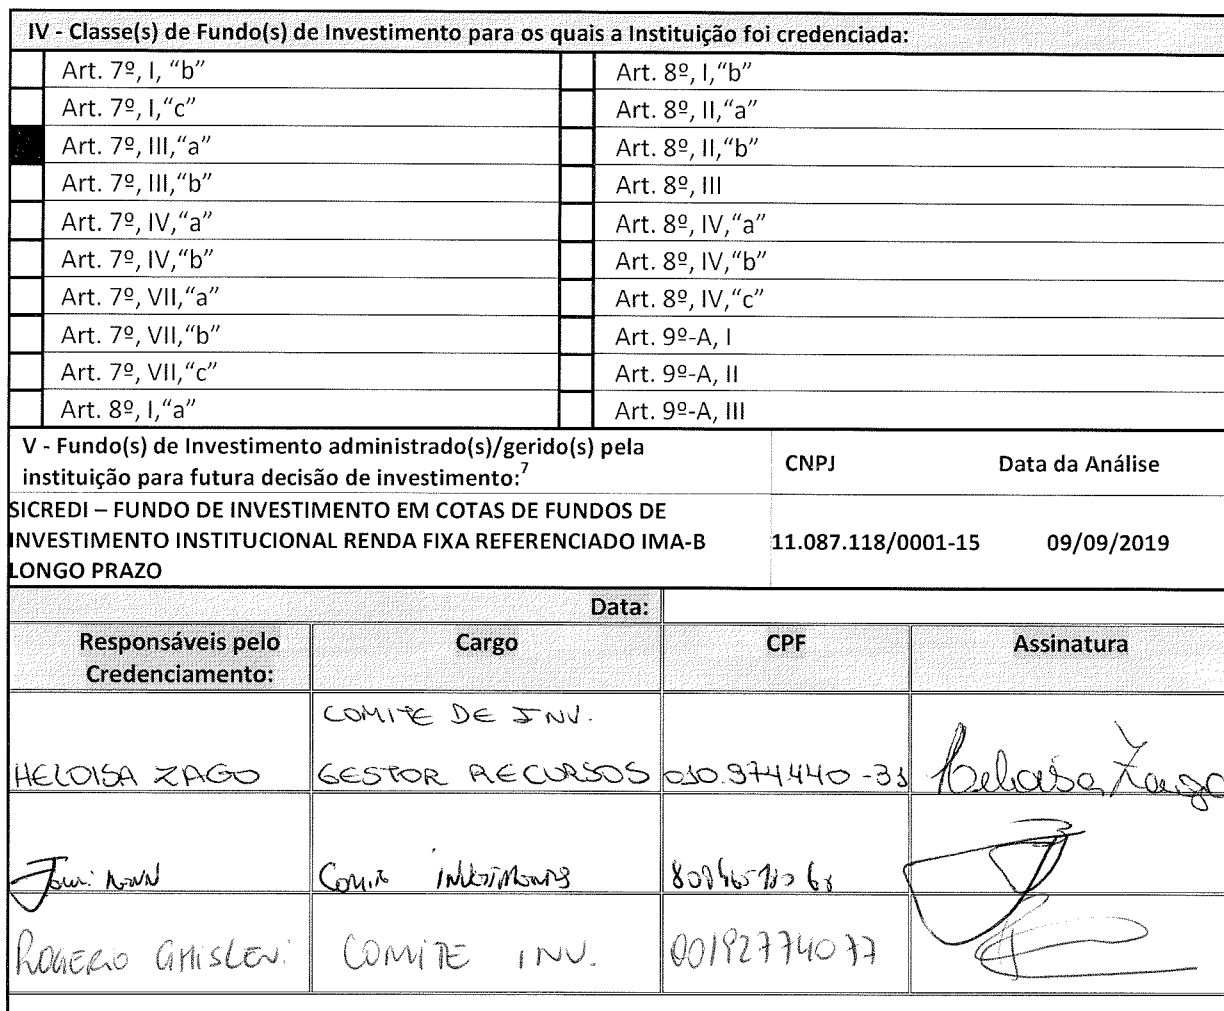 IV - Classe(s) de Fundo(s) de Investimento para os quais a Instituição foi credenciada:
Art. 7º, I, “b” Art. 8º, I,“b”
Art. 7º, I,“c” Art. 8º, II,“a”
Art. 7º, III,“a” Art. 8º, II,“b”
Art. 7º, III,“b” Art. 8º, III
Art. 7º, IV,“a” Art. 8º, IV,“a”
Art. 7º, IV,“b” Art. 8º, IV,“b”
Art. 7º, VII,“a” Art. 8º, IV,“c”
Art. 7º, VII,“b” Art. 9º-A, I
Art. 7º, VII,“c” Art. 9º-A, II
Art. 8º, I,“a” Art. 9º-A, III
V - Fundo(s) de Investimento administrado(s)/gerido(s) pela
instituição para futura decisão de investimento:7 CNPJ Data da Análise
SICREDI – FUNDO DE INVESTIMENTO EM COTAS DE FUNDOS DE
INVESTIMENTO INSTITUCIONAL RENDA FIXA REFERENCIADO IMA-B 11.087.118/0001-15 09/09/2019
LONGO PRAZO
Data:
Responsáveis pelo Cargo CPF Assinatura
Credenciamento:
COMITE DE INV.
HELOISA ZAGO GESTOR RECURSOS Heloisa Zago
ROGERIO GHISLENI COMITE INV. 00192774077